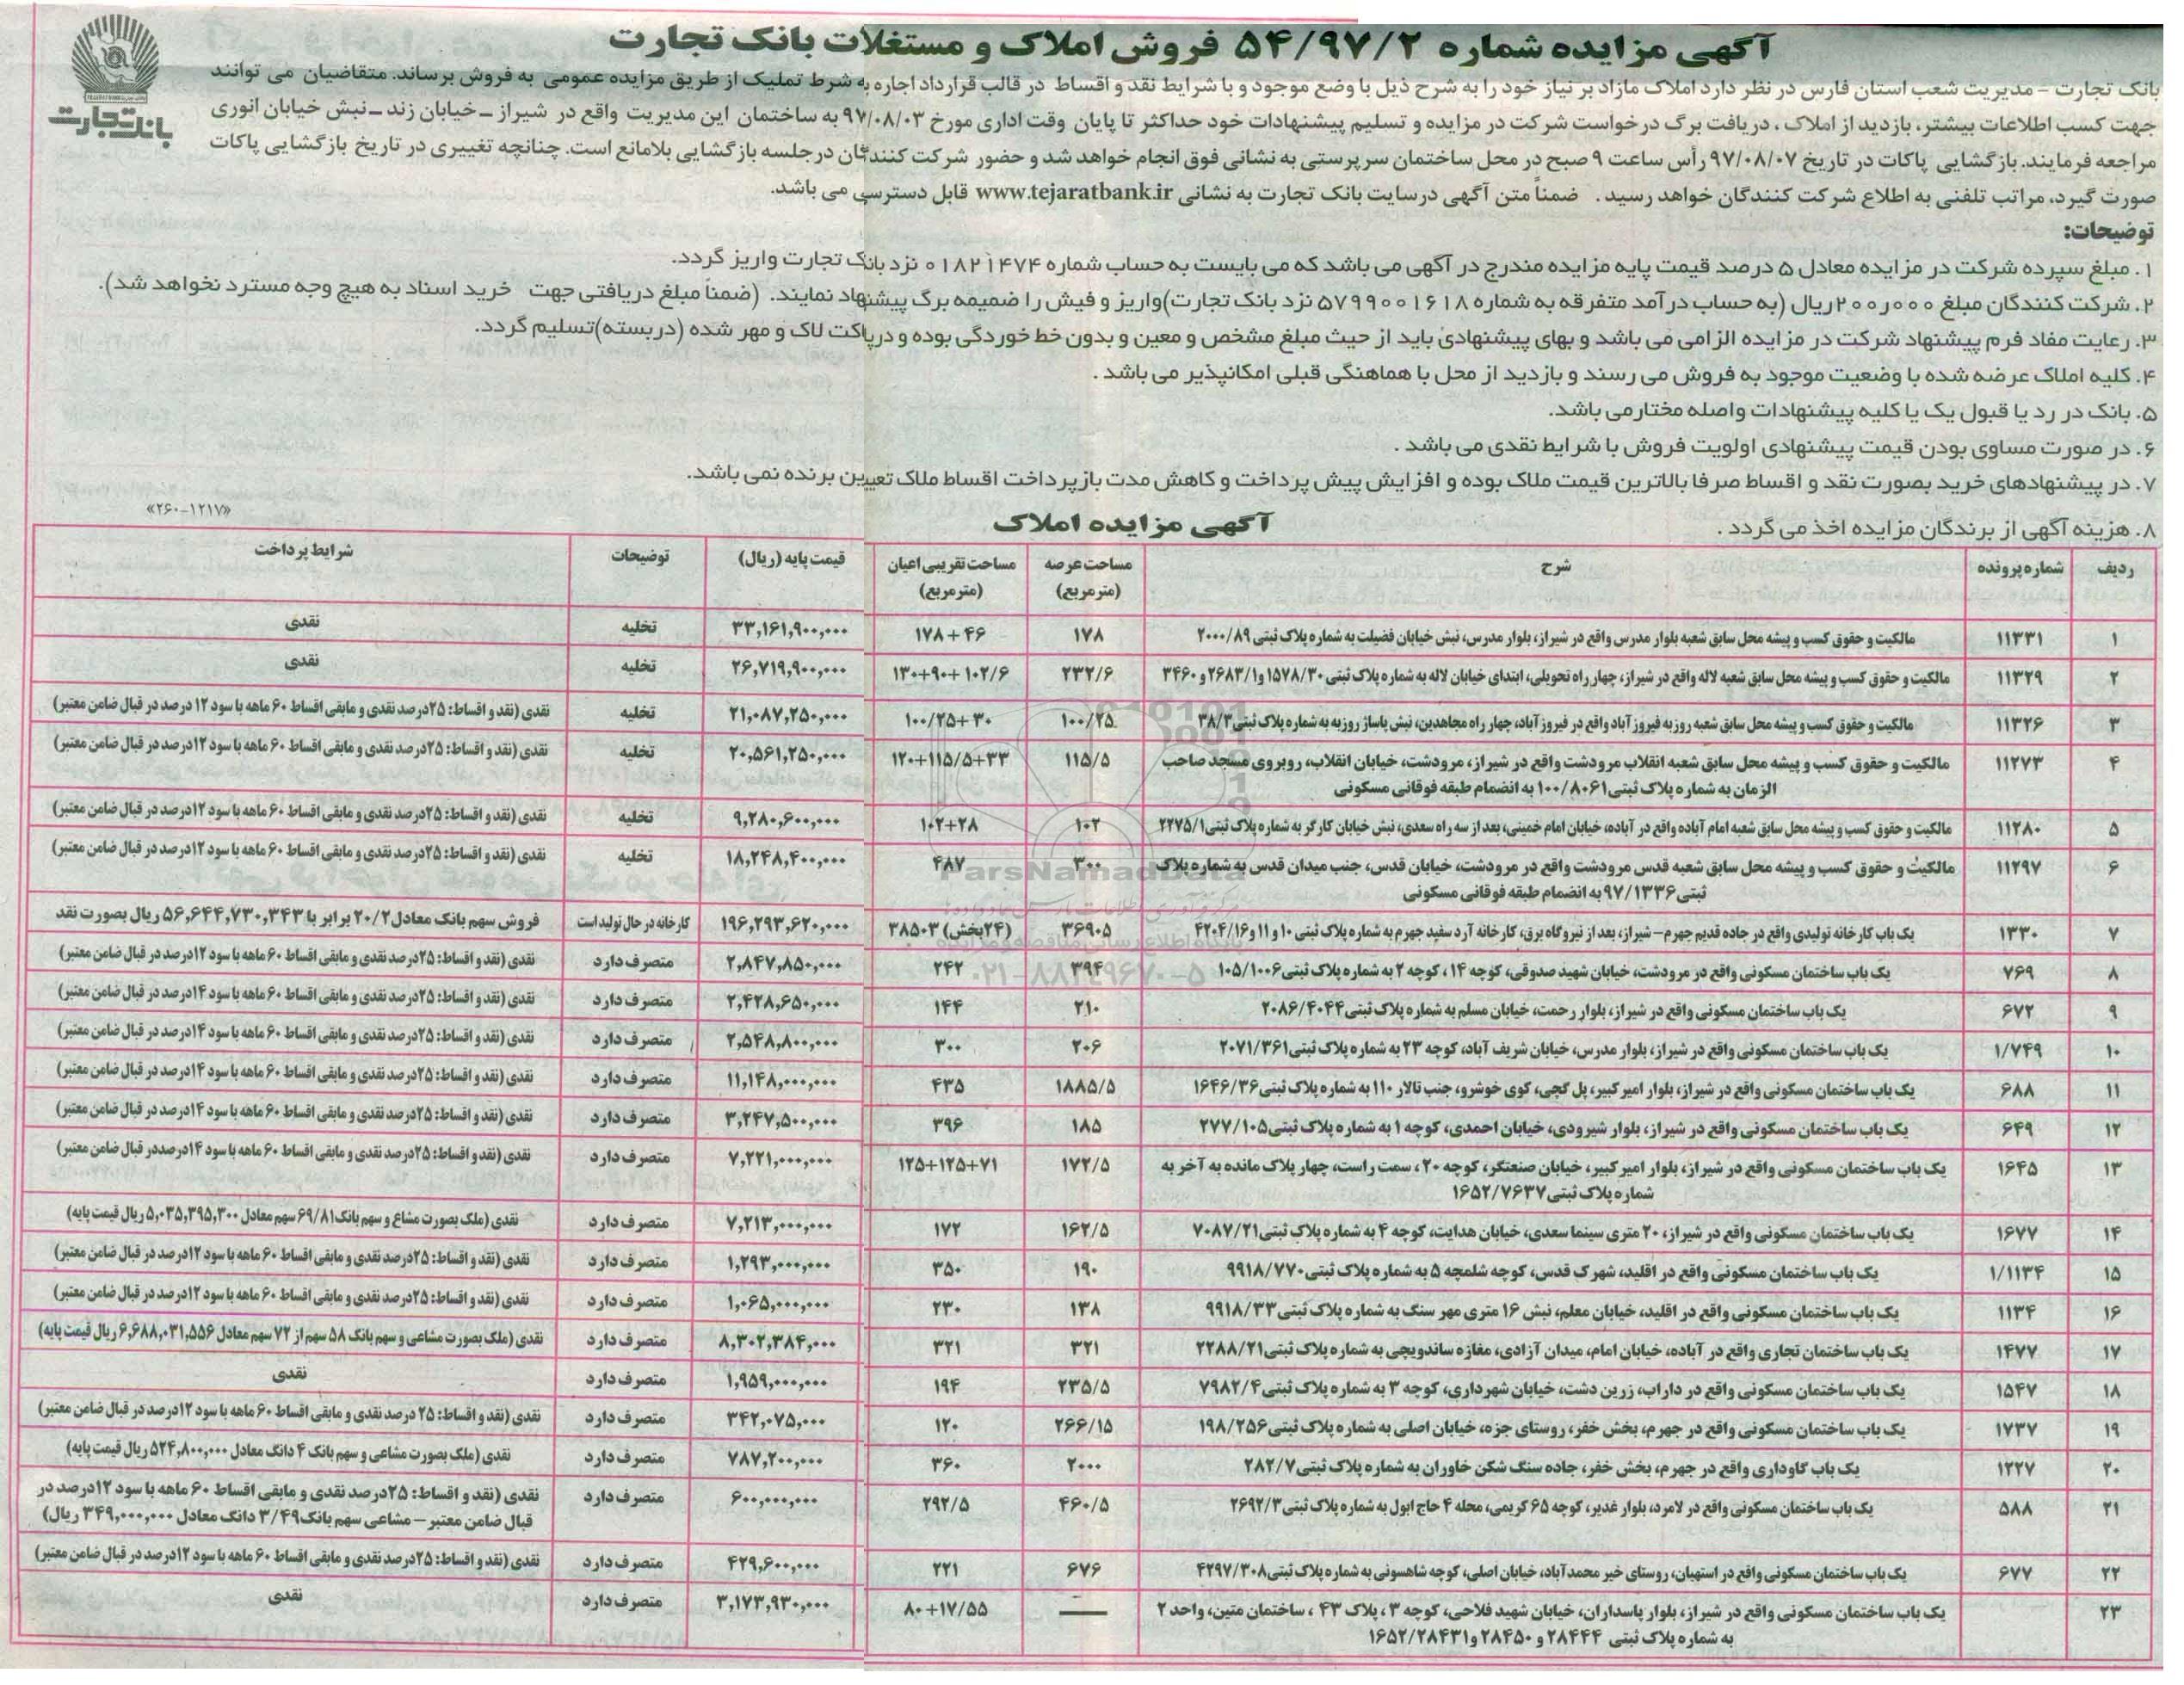 آگهی مزایده شماره ۵۴/۹۷/۲ فروش املاک و مستغلات بانک تجارت
بانک تجارت
بانک تجارت – مدیریت شعب استان فارس در نظر دارد املاک مازاد بر نیاز خود را به شرح ذیل با وضع موجود و با شرایط نقد و اقساط در قالب قرارداد اجاره به شرط تملیک از طریق مزایده عمومی به فروش برساند. متقاضیان می توانند
جهت کسب اطلاعات بیشتر، بازدید از املاک ، دریافت برگ درخواست شرکت در مزایده و تسلیم پیشنهادات خود حداکثر تا پایان وقت اداری مورخ ۹۷/۰۸/۰۳ به ساختمان این مدیریت واقع در شیراز – خیابان زند – نبش خیابان انوری
مراجعه فرمایند. بازگشایی پاکات در تاریخ ۹۷/۰۸/۰۷ رأس ساعت ۹ صبح در محل ساختمان سرپرستی به نشانی فوق انجام خواهد شد و حضور شرکت کنندگان در جلسه بازگشایی بلامانع است. چنانچه تغییری در تاریخ بازگشایی پاکات
صورت گیرد، مراتب تلفنی به اطلاع شرکت کنندگان خواهد رسید . ضمناً متن آگهی در سایت بانک تجارت به نشانی www.tejaratbank.ir قابل دسترسی می باشد.
توضیحات:
۱. مبلغ سپرده شرکت در مزایده معادل ۵ درصد قیمت پایه مزایده مندرج در آگهی می باشد که می بایست به حساب شماره ۰۱۸۲۱۴۷۴ نزد بانک تجارت واریز گردد.
۲. شرکت کنندگان مبلغ ۲۰۰٫۰۰۰ ریال (به حساب درآمد متفرقه به شماره ۵۷۹۹۰۰۱۶۱۸ نزد بانک تجارت)واریز و فیش را ضمیمه برگ پیشنهاد نمایند. (ضمناً مبلغ دریافتی جهت خرید اسناد به هیچ وجه مسترد نخواهد شد).
۳. رعایت مفاد فرم پیشنهاد شرکت در مزایده الزامی می باشد و بهای پیشنهادی باید از حیث مبلغ مشخص و معین و بدون خط خوردگی بوده و در پاکت لاک و مهر شده (دربسته)تسلیم گردد.
۴. کلیه املاک عرضه شده با وضعیت موجود به فروش می رسند و بازدید از محل با هماهنگی قبلی امکانپذیر می باشد .
۵. بانک در رد یا قبول یک یا کلیه پیشنهادات واصله مختارمی باشد.
۶. در صورت مساوی بودن قیمت پیشنهادی اولویت فروش با شرایط نقدی می باشد .
۷. در پیشنهادهای خرید بصورت نقد و اقساط صرفا بالاترین قیمت ملاک بوده و افزایش پیش پرداخت و کاهش مدت بازپرداخت اقساط ملاک تعیین برنده نمی باشد.
۸. هزینه آگهی از برندگان مزایده اخذ می گردد .
«۲۶۰-۱۲۱۷»
آگهی مزایده املاک
ردیف شماره پرونده شرح مساحت عرصه (مترمربع) مساحت تقریبی اعیان (مترمربع) قیمت پایه (ریال) توضیحات شرایط پرداخت
۱ ۱۱۳۳۱ مالکیت و حقوق کسب و پیشه محل سابق شعبه بلوار مدرس واقع در شیراز، بلوار مدرس، نبش خیابان فضیلت به شماره پلاک ثبتی ۲۰۰۰/۸۹ ۱۷۸ ۱۷۸+۴۶ ۳۳,۱۶۱,۹۰۰,۰۰۰ تخلیه نقدی
۲ ۱۱۳۲۹ مالکیت و حقوق کسب و پیشه محل سابق شعبه لاله واقع در شیراز، چهار راه تحویلی، ابتدای خیابان لاله به شماره پلاک ثبتی ۱۵۷۸/۳۰ و۲۶۸۳/۱ و ۳۴۶۰ ۲۳۲/۶ ۱۳۰+۹۰+۱۰۲/۶ ۲۶,۷۱۹,۹۰۰,۰۰۰ تخلیه نقدی
۳ ۱۱۳۲۶ مالکیت و حقوق کسب و پیشه محل سابق شعبه روزبه فیروزآباد واقع در فیروزآباد، چهار راه مجاهدین، نبش پاساژ روزبه به شماره پلاک ثبتی۳۸/۳ ۱۰۰/۲۵ ۱۰۰/۲۵+۳۰ ۲۱,۰۸۷,۲۵۰,۰۰۰ تخلیه نقدی (نقد و اقساط: ۲۵درصد نقدی و مابقی اقساط ۶۰ ماهه با سود ۱۲ درصد در قبال ضامن معتبر)
۴ ۱۱۲۷۳ مالکیت و حقوق کسب و پیشه محل سابق شعبه انقلاب مرودشت واقع در شیراز، مرودشت، خیابان انقلاب، روبروی مسجد صاحب الزمان به شماره پلاک ثبتی۱۰۰/۸۰۶۱ به انضمام طبقه فوقانی مسکونی ۱۱۵/۵ ۱۲۰+۱۱۵/۵+۳۳ ۲۰,۵۶۱,۲۵۰,۰۰۰ تخلیه نقدی (نقد و اقساط: ۲۵درصد نقدی و مابقی اقساط ۶۰ ماهه با سود ۱۲درصد در قبال ضامن معتبر)
۵ ۱۱۲۸۰ مالکیت و حقوق کسب و پیشه محل سابق شعبه امام آباده واقع در آباده، خیابان امام خمینی، بعد از سه راه سعدی، نبش خیابان کارگر به شماره پلاک ثبتی۲۲۷۵/۱ ۱۰۲ ۱۰۲+۲۸ ۹,۲۸۰,۶۰۰,۰۰۰ تخلیه نقدی (نقد و اقساط: ۲۵درصد نقدی و مابقی اقساط ۶۰ ماهه با سود ۱۲درصد در قبال ضامن معتبر)
۶ ۱۱۲۹۷ مالکیت و حقوق کسب و پیشه محل سابق شعبه قدس مرودشت واقع در مرودشت، خیابان قدس، جنب میدان قدس به شماره پلاک ثبتی۹۷/۱۳۳۶ به انضمام طبقه فوقانی مسکونی ۳۰۰ ۴۸۷ ۱۸,۲۴۸,۴۰۰,۰۰۰ تخلیه نقدی (نقد و اقساط: ۲۵درصد نقدی و مابقی اقساط ۶۰ ماهه با سود ۱۲درصد در قبال ضامن معتبر)
۷ ۱۳۳۰ یک باب کارخانه تولیدی واقع در جاده قدیم جهرم– شیراز، بعد از نیروگاه برق، کارخانه آرد سفید جهرم به شماره پلاک ثبتی ۱۰ و ۱۱ و۴۲۰۴/۱۶ ۳۶۹۰۵ (۲۴بخش) ۳۸۵۰۳ ۱۹۶,۲۹۳,۶۲۰,۰۰۰ کارخانه در حال تولید است فروش سهم بانک معادل۲۰/۲ برابر با ۵۶,۶۴۴,۷۳۰,۳۴۳ ریال بصورت نقد
۸ ۷۶۹ یک باب ساختمان مسکونی واقع در مرودشت، خیابان شهید صدوقی، کوچه ۱۴ ، کوچه ۲ به شماره پلاک ثبتی۱۰۵/۱۰۰۶ ۳۹۴ ۲۴۲ ۲,۸۴۷,۸۵۰,۰۰۰ متصرف دارد نقدی (نقد و اقساط: ۲۵درصد نقدی و مابقی اقساط ۶۰ ماهه با سود ۱۲درصد در قبال ضامن معتبر)
۹ ۶۷۲ یک باب ساختمان مسکونی واقع در شیراز، بلوار رحمت، خیابان مسلم به شماره پلاک ثبتی۲۰۸۶/۴۰۴۴ ۲۱۰ ۱۴۴ ۲,۴۲۸,۶۵۰,۰۰۰ متصرف دارد نقدی (نقد و اقساط: ۲۵درصد نقدی و مابقی اقساط ۶۰ ماهه با سود ۱۴درصد در قبال ضامن معتبر)
۱۰ ۱/۷۴۹ یک باب ساختمان مسکونی واقع در شیراز، بلوار مدرس، خیابان شریف آباد، کوچه ۲۳ به شماره پلاک ثبتی۲۰۷۱/۳۶۱ ۲۰۶ ۳۰۰ ۲,۵۴۸,۸۰۰,۰۰۰ متصرف دارد نقدی (نقد و اقساط: ۲۵درصد نقدی و مابقی اقساط ۶۰ ماهه با سود ۱۴درصد در قبال ضامن معتبر)
۱۱ ۶۸۸ یک باب ساختمان مسکونی واقع در شیراز، بلوار امیرکبیر، پل گچی، کوی خوشرو، جنب تالار ۱۱۰ به شماره پلاک ثبتی۱۶۴۶/۳۶ ۱۸۸۵/۵ ۴۳۵ ۱۱,۱۴۸,۰۰۰,۰۰۰ متصرف دارد نقدی (نقد و اقساط: ۲۵درصد نقدی و مابقی اقساط ۶۰ ماهه با سود ۱۴درصد در قبال ضامن معتبر)
۱۲ ۶۴۹ یک باب ساختمان مسکونی واقع در شیراز، بلوار شیرودی، خیابان احمدی، کوچه ۱ به شماره پلاک ثبتی۲۷۷/۱۰۵ ۱۸۵ ۳۹۶ ۳,۲۴۷,۵۰۰,۰۰۰ متصرف دارد نقدی (نقد و اقساط: ۲۵درصد نقدی و مابقی اقساط ۶۰ ماهه با سود ۱۴درصد در قبال ضامن معتبر)
۱۳ ۱۶۴۵ یک باب ساختمان مسکونی واقع در شیراز، بلوار امیرکبیر، خیابان صنعتگر، کوچه ۲۰ ، سمت راست، چهار پلاک مانده به آخر به شماره پلاک ثبتی۱۶۵۲/۷۶۳۷ ۱۷۲/۵ ۱۲۵+۱۲۵+۷۱ ۷,۲۲۱,۰۰۰,۰۰۰ متصرف دارد نقدی (نقد و اقساط: ۲۵درصد نقدی و مابقی اقساط ۶۰ ماهه با سود ۱۴درصددر قبال ضامن معتبر)
۱۴ ۱۶۷۷ یک باب ساختمان مسکونی واقع در شیراز، ۲۰ متری سینما سعدی، خیابان هدایت، کوچه ۴ به شماره پلاک ثبتی۷۰۸۷/۲۱ ۱۶۲/۵ ۱۷۲ ۷,۲۱۳,۰۰۰,۰۰۰ متصرف دارد نقدی (ملک بصورت مشاع و سهم بانک۶۹/۸۱ سهم معادل ۵,۰۳۵,۳۹۵,۳۰۰ ریال قیمت پایه)
۱۵ ۱/۱۱۳۴ یک باب ساختمان مسکونی واقع در اقلید، شهرک قدس، کوچه شلمچه ۵ به شماره پلاک ثبتی۹۹۱۸/۷۷۰ ۱۹۰ ۳۵۰ ۱,۲۹۳,۰۰۰,۰۰۰ متصرف دارد نقدی (نقد و اقساط: ۲۵درصد نقدی و مابقی اقساط ۶۰ ماهه با سود ۱۲درصد در قبال ضامن معتبر)
۱۶ ۱۱۳۴ یک باب ساختمان مسکونی واقع در اقلید، خیابان معلم، نبش ۱۶ متری مهر سنگ به شماره پلاک ثبتی۹۹۱۸/۳۳ ۱۳۸ ۲۳۰ ۱,۰۶۵,۰۰۰,۰۰۰ متصرف دارد نقدی (نقد و اقساط: ۲۵درصد نقدی و مابقی اقساط ۶۰ ماهه با سود ۱۲درصد در قبال ضامن معتبر)
۱۷ ۱۴۷۷ یک باب ساختمان تجاری واقع در آباده، خیابان امام، میدان آزادی، مغازه ساندویچی به شماره پلاک ثبتی۲۲۸۸/۲۱ ۳۲۱ ۳۲۱ ۸,۳۰۲,۳۸۴,۰۰۰ متصرف دارد نقدی (ملک بصورت مشاعی و سهم بانک ۵۸ سهم از ۷۲ سهم معادل ۶,۶۸۸,۰۳۱,۵۵۶ ریال قیمت پایه)
۱۸ ۱۵۴۷ یک باب ساختمان مسکونی واقع در داراب، زرین دشت، خیابان شهرداری، کوچه ۳ به شماره پلاک ثبتی۷۹۸۲/۴ ۲۳۵/۵ ۱۹۴ ۱,۹۵۹,۰۰۰,۰۰۰ متصرف دارد نقدی
۱۹ ۱۷۳۷ یک باب ساختمان مسکونی واقع در جهرم، بخش خفر، روستای جزه، خیابان اصلی به شماره پلاک ثبتی۱۹۸/۲۵۶ ۲۶۶/۱۵ ۱۲۰ ۳۴۲,۰۷۵,۰۰۰ متصرف دارد نقدی (نقد و اقساط: ۲۵ درصد نقدی و مابقی اقساط ۶۰ ماهه با سود ۱۲درصد در قبال ضامن معتبر)
۲۰ ۱۲۲۷ یک باب گاوداری واقع در جهرم، بخش خفر، جاده سنگ شکن خاوران به شماره پلاک ثبتی۲۸۲/۷ ۲۰۰۰ ۳۶۰ ۷۸۷,۲۰۰,۰۰۰ متصرف دارد نقدی (ملک بصورت مشاعی و سهم بانک ۴ دانگ معادل ۵۲۴,۸۰۰,۰۰۰ ریال قیمت پایه)
۲۱ ۵۸۸ یک باب ساختمان مسکونی واقع در لامرد، بلوار غدیر، کوچه ۶۵ کریمی، محله ۴ حاج ابول به شماره پلاک ثبتی۲۶۹۲/۳ ۴۶۰/۵ ۲۹۲/۵ ۶۰۰,۰۰۰,۰۰۰ متصرف دارد نقدی (نقد و اقساط: ۲۵درصد نقدی و مابقی اقساط ۶۰ ماهه با سود ۱۲درصد در قبال ضامن معتبر – مشاعی سهم بانک۳/۴۹ دانگ معادل ۳۴۹,۰۰۰,۰۰۰ ریال)
۲۲ ۶۷۷ یک باب ساختمان مسکونی واقع در استهبان، روستای خیر محمدآباد، خیابان اصلی، کوچه شاهسونی به شماره پلاک ثبتی۴۲۹۷/۳۰۸ ۶۷۶ ۲۲۱ ۴۲۹,۶۰۰,۰۰۰ متصرف دارد نقدی (نقد و اقساط: ۲۵درصد نقدی و مابقی اقساط ۶۰ ماهه با سود ۱۲درصد در قبال ضامن معتبر)
۲۳ یک باب ساختمان مسکونی واقع در شیراز، بلوار پاسداران، خیابان شهید فلاحی، کوچه ۳ ، پلاک ۴۳ ، ساختمان متین، واحد ۲ به شماره پلاک ثبتی ۲۸۴۴۴ و ۲۸۴۵۰ و۱۶۵۲/۲۸۴۳۱ — ۸۰+۱۷/۵۵ ۳,۱۷۳,۹۳۰,۰۰۰ متصرف دارد نقدی
ParsNamadData
پایگاه اطلاع رسانی مناقصه و مزایده
۰۲۱-۸۸۳۴۹۶۷۰-۵